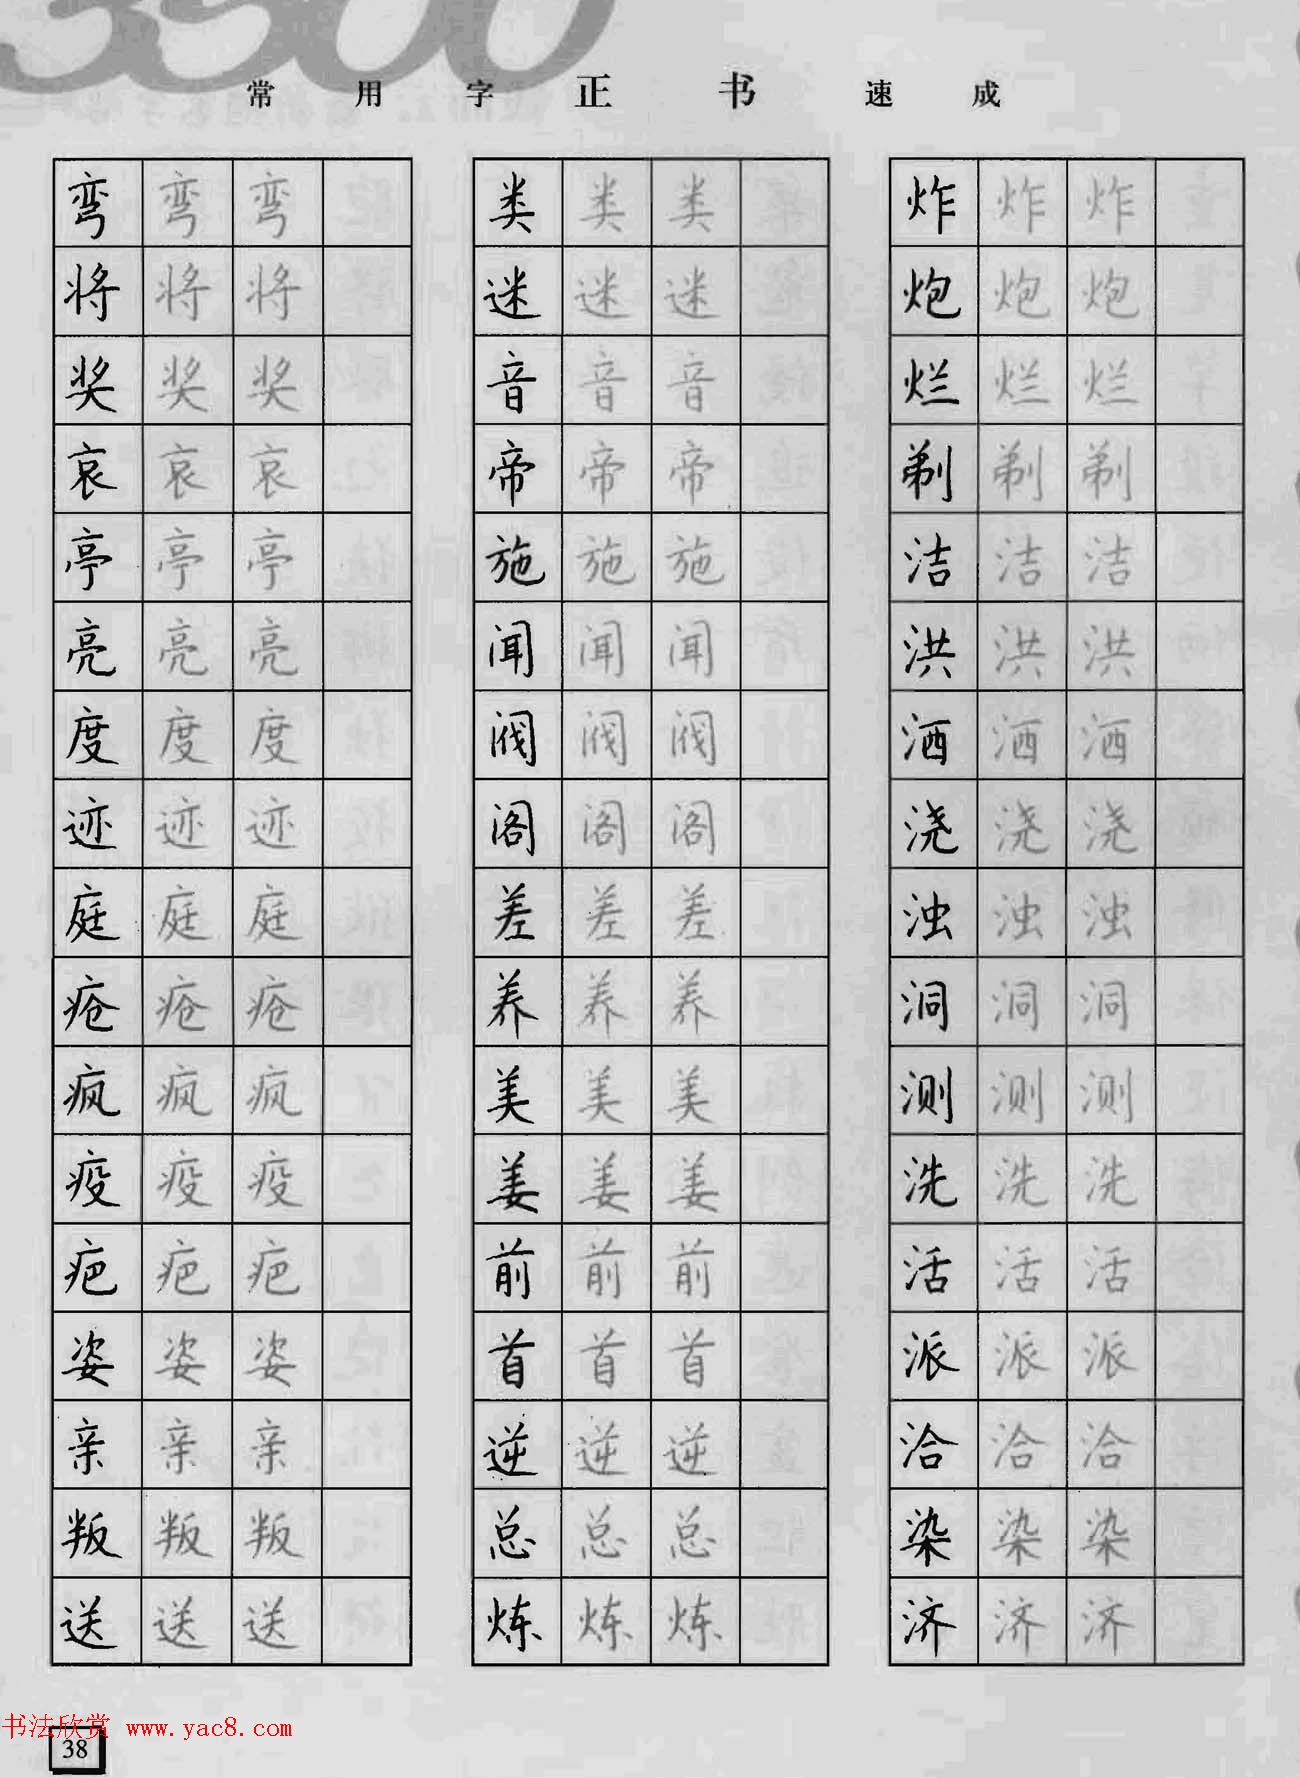 3500
常用字正书速成
弯弯弯 类类类 炸炸炸
将将将 迷迷迷 炮炮炮
奖奖奖 音音音 烂烂烂
哀哀哀 帝帝帝 剃剃剃
亭亭亭 施施施 洁洁洁
亮亮亮 闻闻闻 洪洪洪
度度度 阀阀阀 洒洒洒
迹迹迹 阁阁阁 浇浇浇
庭庭庭 差差差 浊浊浊
疮疮疮 养养养 洞洞洞
疯疯疯 美美美 测测测
疫疫疫 姜姜姜 洗洗洗
疤疤疤 前前前 活活活
姿姿姿 首首首 派派派
亲亲亲 逆逆逆 洽洽洽
叛叛叛 总总总 染染染
送送送 炼炼炼 济济济
书法欣赏 www.yac8.com
38